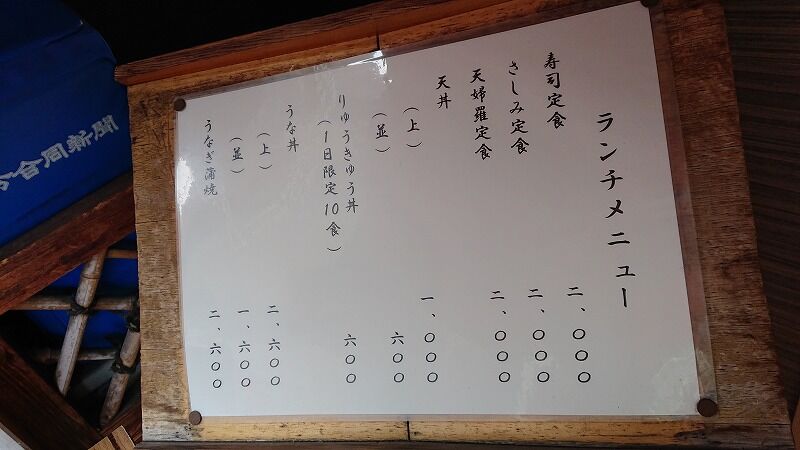 ランチメニュー
寿司定食 二、〇〇〇
さしみ定食 二、〇〇〇
天婦羅定食 二、〇〇〇
天丼
(上) 一、〇〇〇
(並) 六〇〇
りゅうきゅう丼
(1日限定10食) 六〇〇
うな丼
(上) 二、六〇〇
(並) 一、六〇〇
うなぎ蒲焼 二、六〇〇
合同新聞